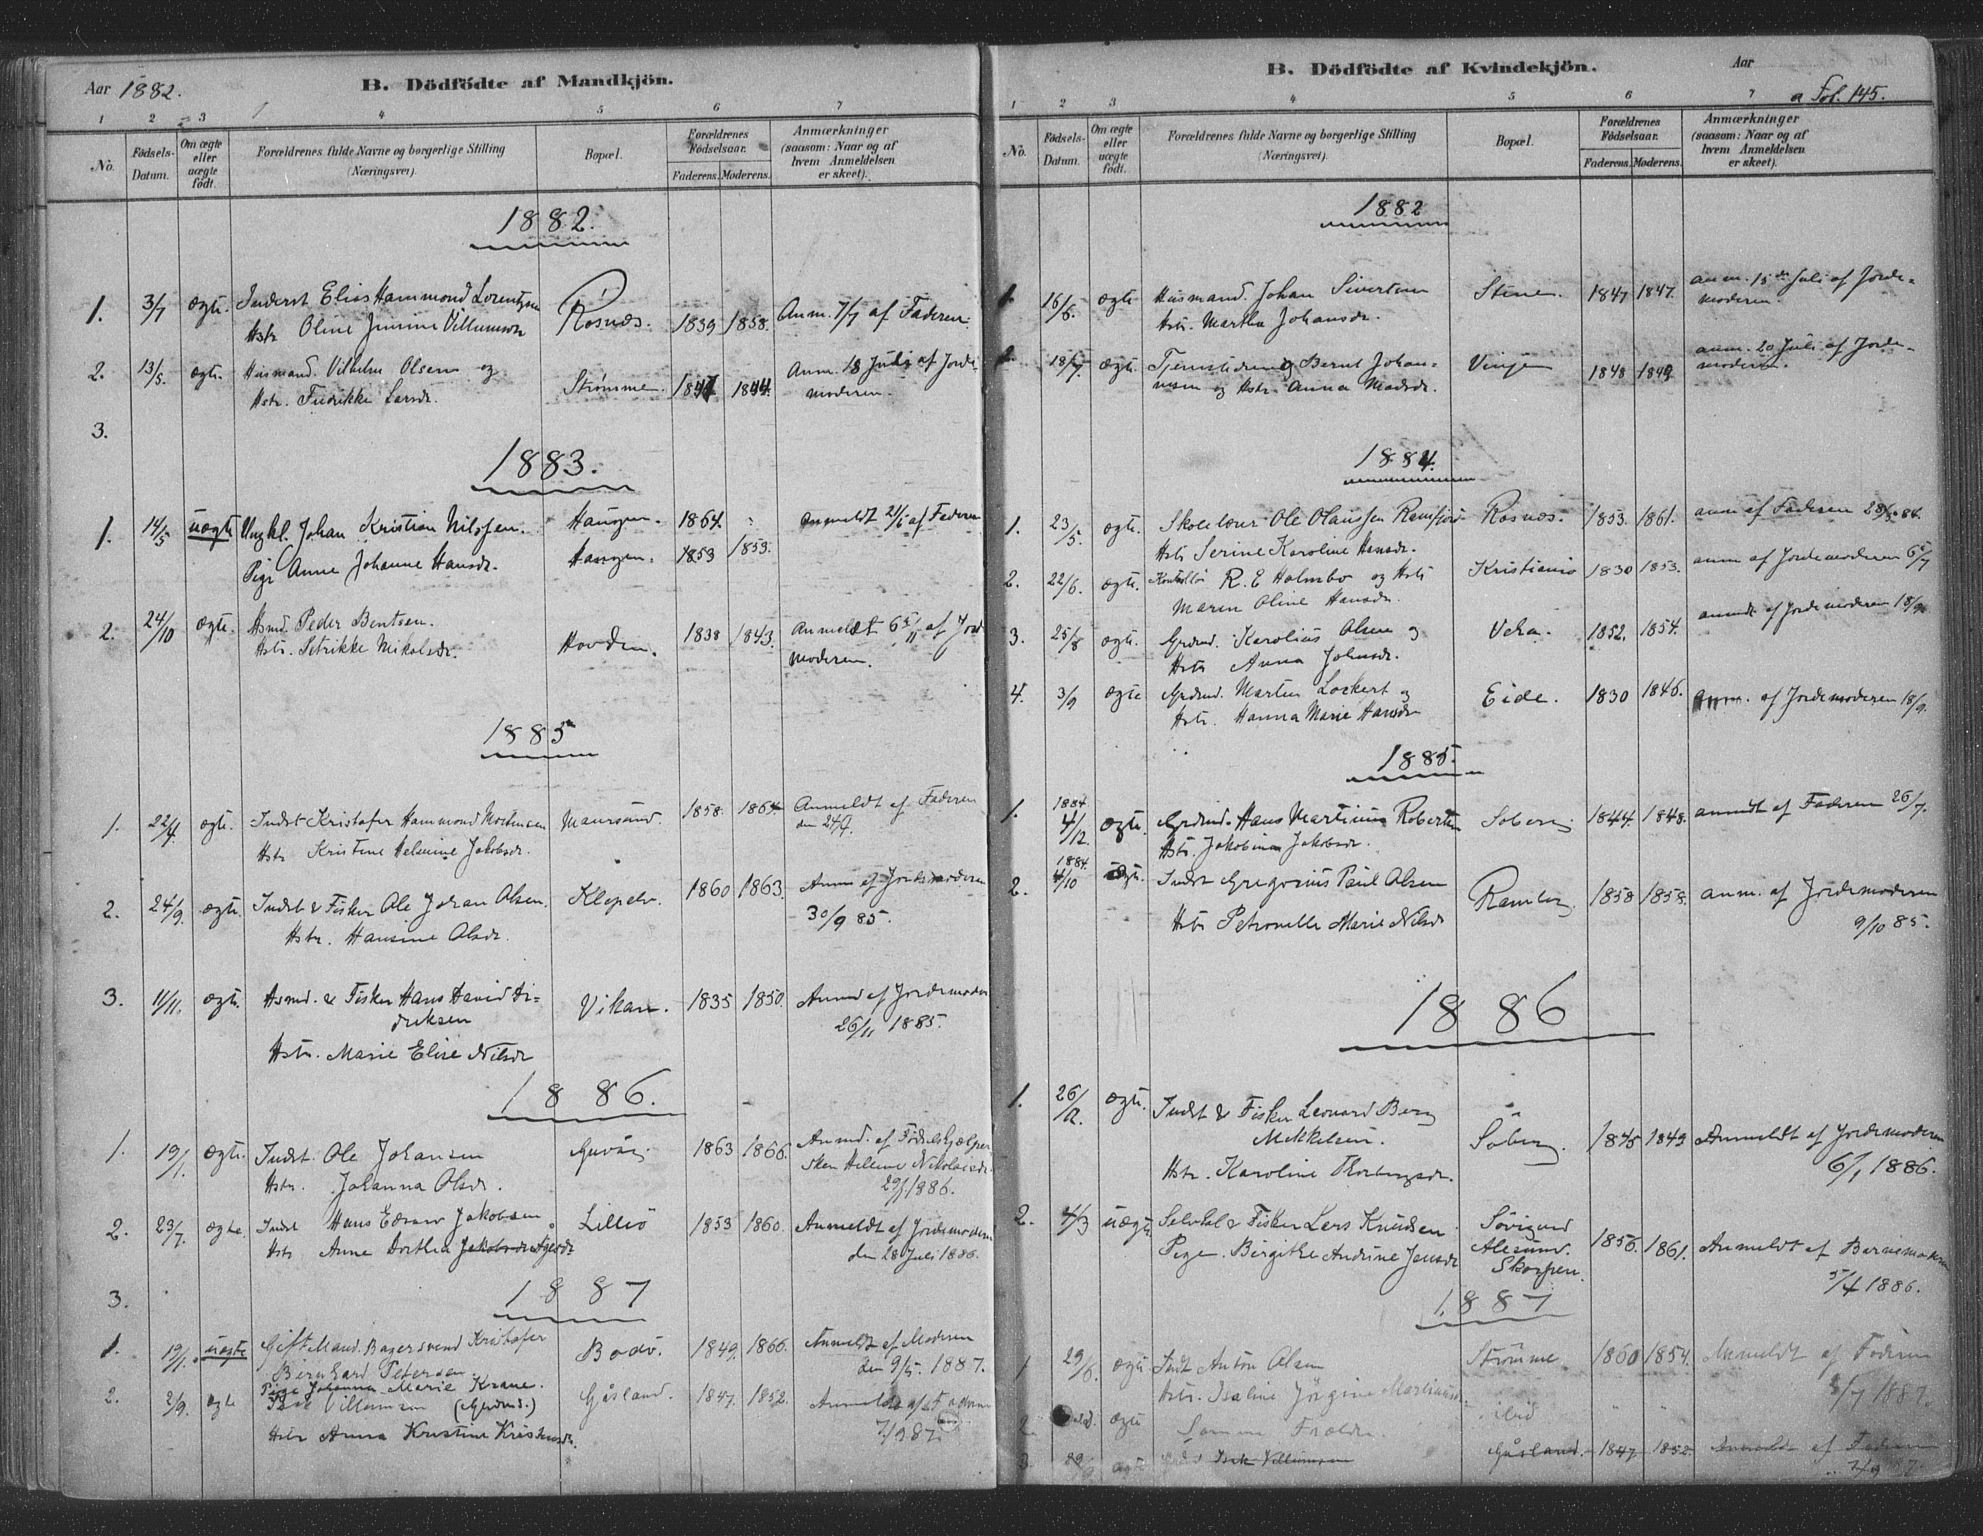 Aar 1882.
B. Dödfödte af Mandkjön.
1 2 3 4 5 6 7
No. Födsels-Datum. Om ægte eller uægte födt. Forældrenes fulde Navne og borgerlige Stilling (Næringsvei). Bopæl. Forældrenes Födselsaar. Faderens. Moderens. Anmærkninger (saasom: Naar og af hvem Anmeldelsen er skeet).
1882.
1. 3/7 ægte. Inderst Elias Hammond Lorentzen Rosnæs. 1839 1858. Anm. 7/7 af Faderen.
Hstr Oline Villumsdr
2. 13/5. ægte. Husmand. Vilhelm Olsen og Strømmen 1844.
Anm. 18 Juli af Jorde-
Hstr. Fredrikke Larsdr. moderen.
3.
1883.
1. 14/5 uægte Ungkl. Johan Kristian Nilssen. Haugen. 1864. Anmeldt af Faderen
Pige Anne Johanne Hansdr. Haugen. 1853 1853.
2. 24/10 ægte. Hsmd. Peder Bentsen. Hovden. 1838 1843. Anmeldt 6te/11 af Jord
Hstr. Petrikke Nikolsdr. moderen.
1885
1. 22/4. ægte. Indst Kristofer Hammond Mortensen Maursund. 1858. 1864. Anmeldt af Faderen
Hstr Kristine Helmine Jakobsdr. den
2. 24/9. ægte. Indst & Fisker Ole Johan Olsen. Klepelv. 1860 1863. Anm af Jordemoderen
Hstr. Hansine Olsdr. 30/9 85.
3. 11/11. ægte. Hsmd. & Fisker Hans David Di-
driksen Vikan. 1835 1850. Anmd af Jordemoder
26/11 1885.
Hstr. Marie Elise Nilsdr
1886.
1. 19/1. ægte. Indst. Ole Johansen 1863 1866. Anmd. af Fødselshjælper
Hstr. Johanna Olsdr. sken Helene Nikolaisdr
1886.
2. 23/7. ægte. Indst Hans Edvard Jakobsen Lillø 1853 1860. Anmeldt af Jordemoderen
Hstr Anne Dorthea Jakobsdr den 28 Juli 1886.
1887
3.
1. 19/1. uægte Gift Mand. Bagersvend Kristofer Bodø. 1849. 1866. Anmeldt af Moderen
Bernhard Petersen. den 9/5. 1887.
Pige Johanna Marie Krane.
2. 2/9. ægte Villumsen (Grdmd.) Gåsland. 1847. 1852. Anmeldt af Faderen
Hstr Anna Kristine Kristensdr. 7/9 87.
B. Dödfödte af Kvindekjön.
Aar
a Fol. 145.
1 2 3 4 5 6 7
No. Födsels-Datum. Om ægte eller uægte födt. Forældrenes fulde Navne og borgerlige Stilling (Næringsvei). Bopæl. Forældrenes Födselsaar. Faderens. Moderens. Anmærkninger (saasom: Naar og af hvem Anmeldelsen er skeet).
1882
1. 16/6. ægte Husmand. Johan Sivertsen Stene. 1847 1847. anm. 15de Juli af Jorde-
Hstr. Martha Johansdr. moderen.
2. 18/7. ægte. Bernt Johan- Vinje 1848 1849 anm. 20 Juli af Jorde-
nesen og Hstr. Anna Madsdr. moderen.
1884.
1. 23/5. ægte. Skolelærer Ole Olaussen Ramfjord Rosnæs. 1853. 1861. anm af Faderen
Hstr Serine Karoline Hansdr.
2. 22/6. ægte. R. E Holmbo og Hstr Kristiansø 1830 1853. anm af Jordemoderen
Maren Oline Hansdr.
3. 25/8 ægte. Grdmd. Karolius Olsen og 1852. 1854. anmdt af Jordemoderen 18/9.
Hstr Anna Johnsdr.
4. 3/9 ægte Grdmd. Martin Lockert og Eide. 1830 1846. Anm. af Jordemoderen 18/9.
Hstr. Hanna Marie Hansdr
1885.
1. 1884. 4/12. ægte. Grdmd. Hans Martinus Robertsen Soberg 1844. 1848. anmdt af Faderen 26/7.
Hstr. Jakobine Jakobsdr.
2. 1884. 4/10 Indst Gregorius Paul Olsen Ramberg 1858 1858. anm. af Jordemoderen
Hstr Petronelle Marie Nilsdr 9/10 85.
1886
1. 26/12. ægte. Indst & Fisker Leonard Berg
Mikkelsen. Søberg. 1845 1849 Anmeldt af Jordemoderen
Hstr. Karoline Thorbergsdr. 6/1 1886.
2. 4/3 uægte Selvkl & Fisker Lars Knudsen
Pige. Birgithe Andrine Jensdr Alesund. Skorpen. 1856. 1861. Anmeldt af Barnemoderen
5/4 1886.
1887
1 29/6. ægte Indst Anton Olsen Strømme 1860 1854. Anmeldt af Faderen
Hstr. Isaline Jörgine 5/7 1887.
2. ægte Samme Forældre ibid " "
3. 29/ ægte Villumsen Gåsland. 1847 1852. Anmeldt af Faderen